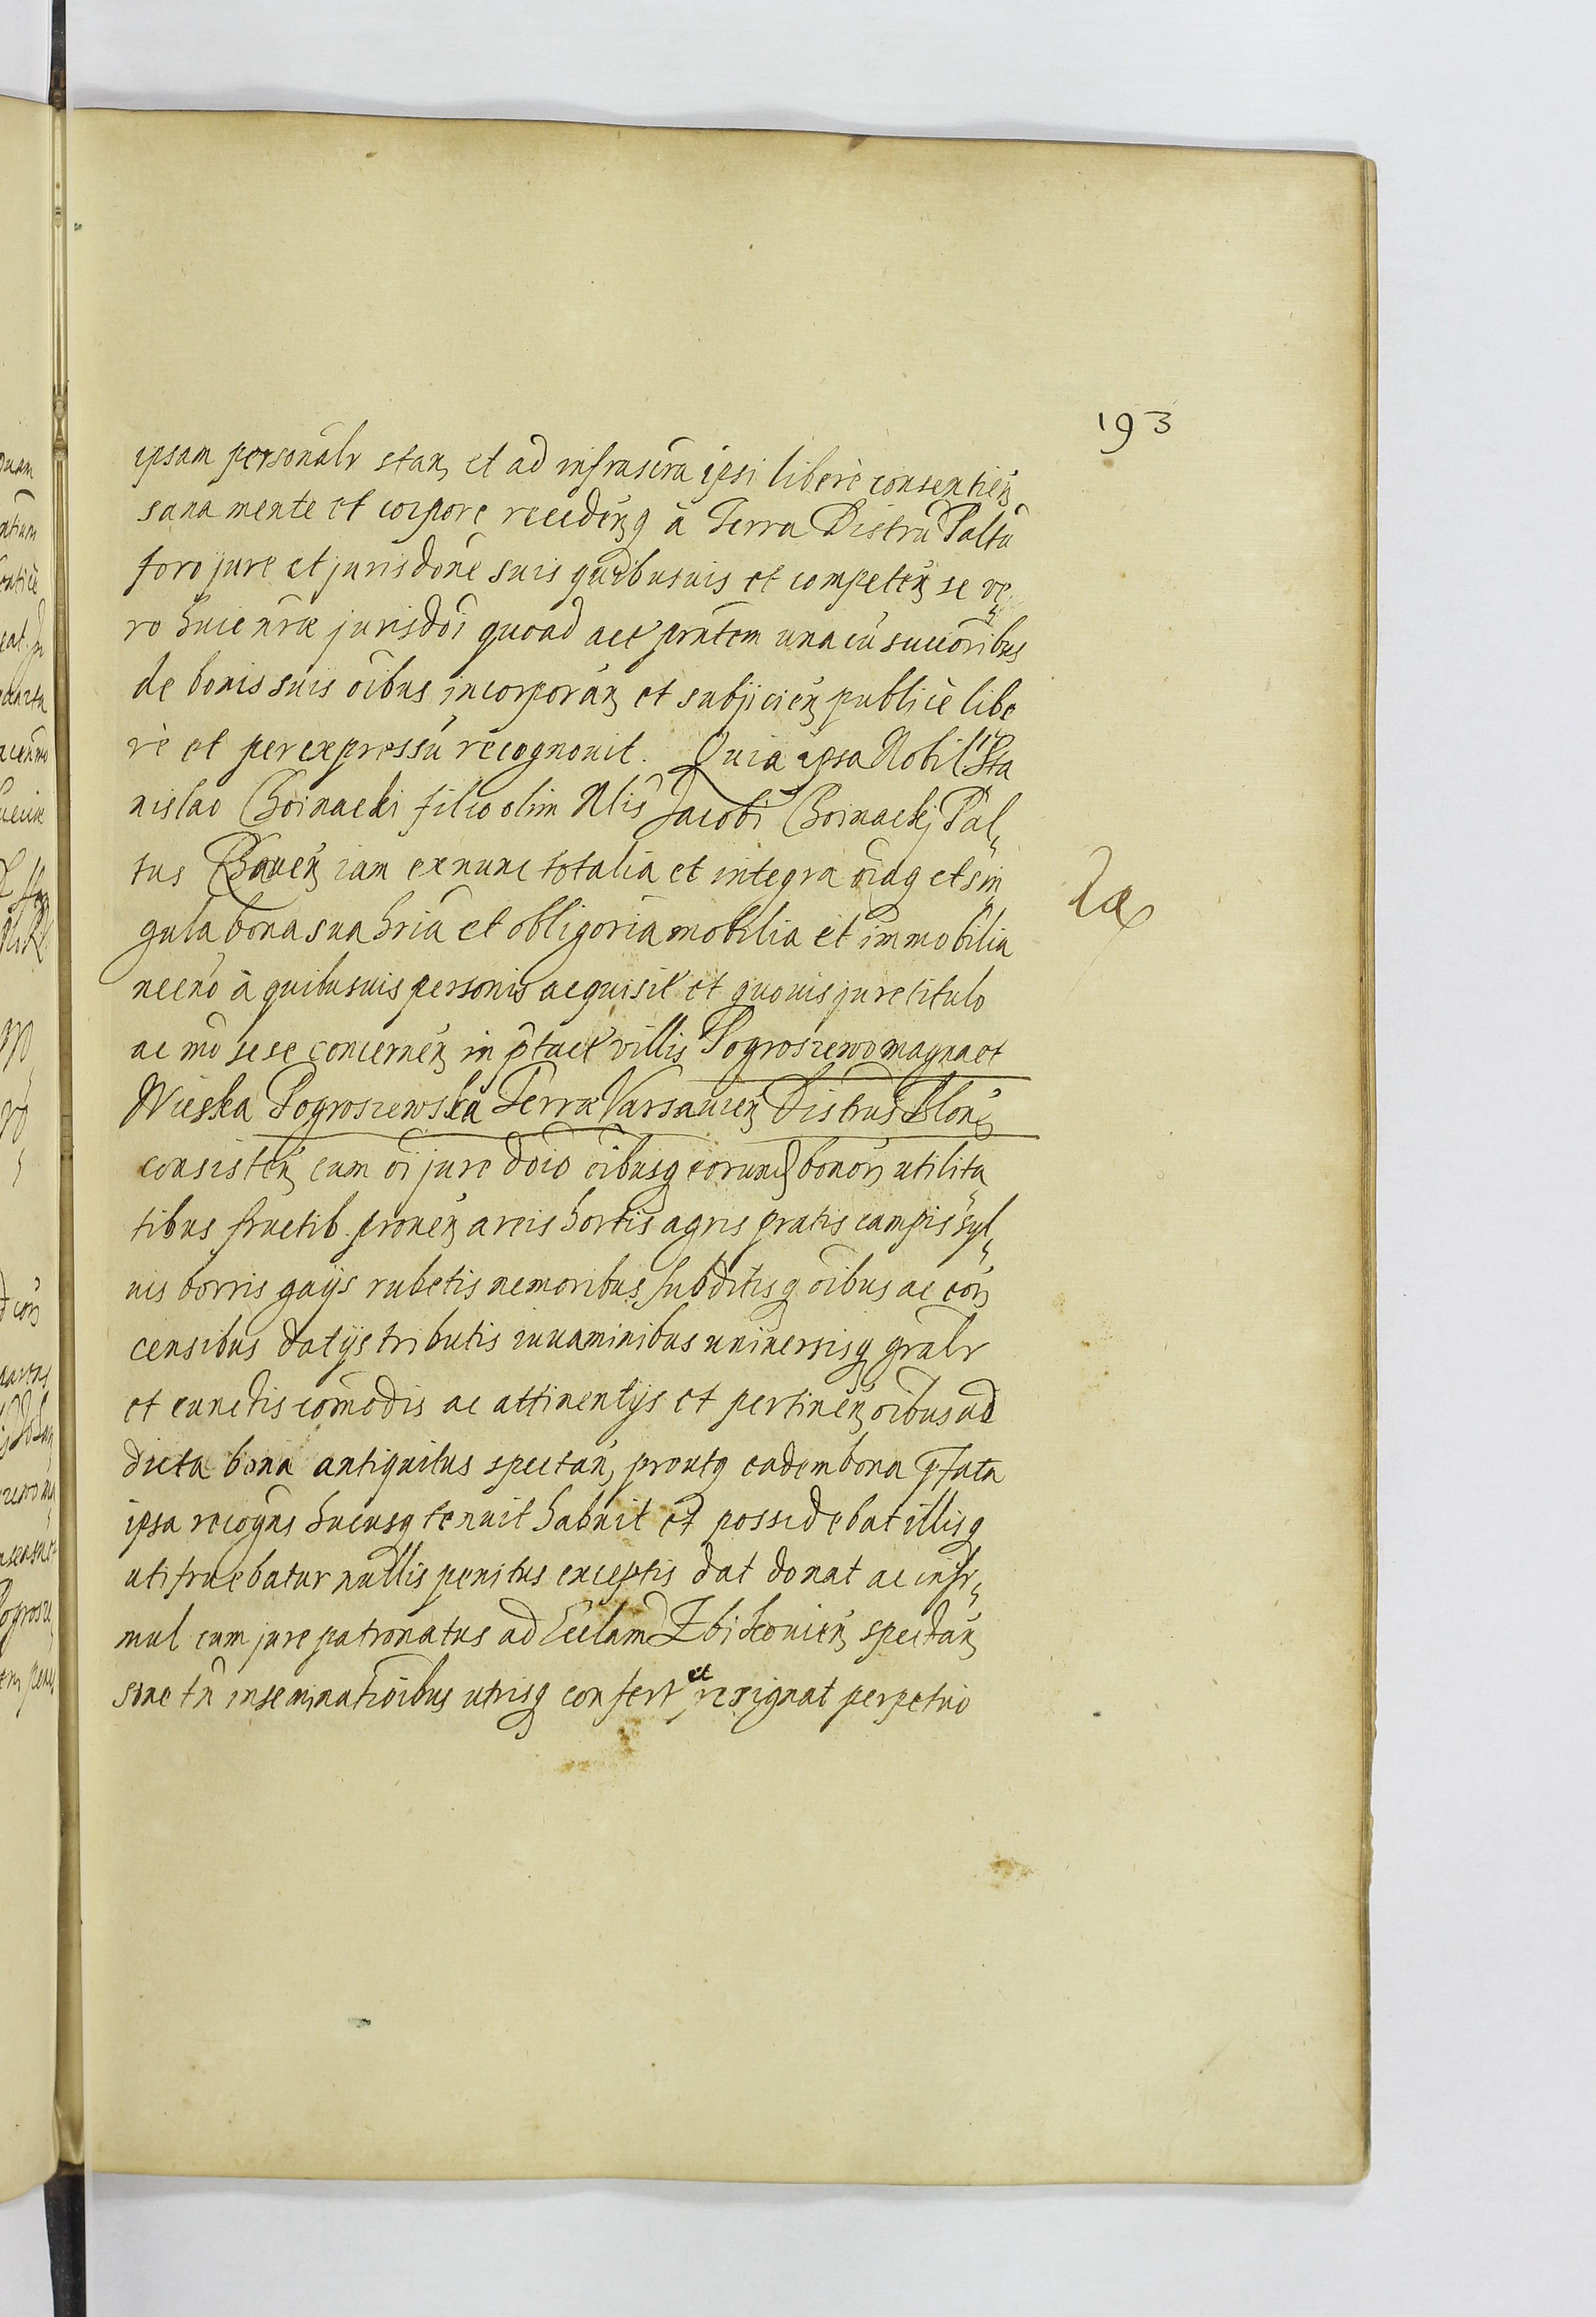 193
ipsam personalr stan, et ad infrascra ipsi libere consentien
sana mente et corpore recedenq à Terra Distru Paltu
foro jure et jurisdone suis quibusuis et competen se ve
ro huic nræ jurisdoi quoad act pntem una cu succoribus
de bonis suis oibus incorporan et subjicien publicè libe
rè et per expressu recognouit. Quia ipsa Nobili Sta
nislao Choinacki filio olim Nlis Jacobi Choinackj Pal
tus iam ex nunc totalia et integra oiaq et sin
gula bona sua hria et obligoria mobilia et immobilia
necno à quibusuis personis acquisit et quouis jure titulo
ac mo sese concernen in ptact villis Pogroszewo magna et
Wieska Pogroszewska Terræ Varsauien Distrus Blonen
consisten cum oi jure doio oibusq eorund bonor utilita
tibus fructib. prouen areis hortis agris pratis campis syl
uis borris gays rubetis nemoribus subditisq oibus ac eor
censibus datijs tributis iuuaminibus uniuersisq gralr
et cunctis comodis ac attinentijs et pertinen oibus ad
dicta bona antiquitus spectan, proutq eadem bona pfata
ipsa recogns hucusq tenuit habuit et possidebat illisq
uti fruebatur nullis penitus exceptis dat donat ac insi
mul cum jure patronatus ad Ecclam Zbikouien spectan
sine tn inseminatioibus utrisq confert et resignat perpetuo